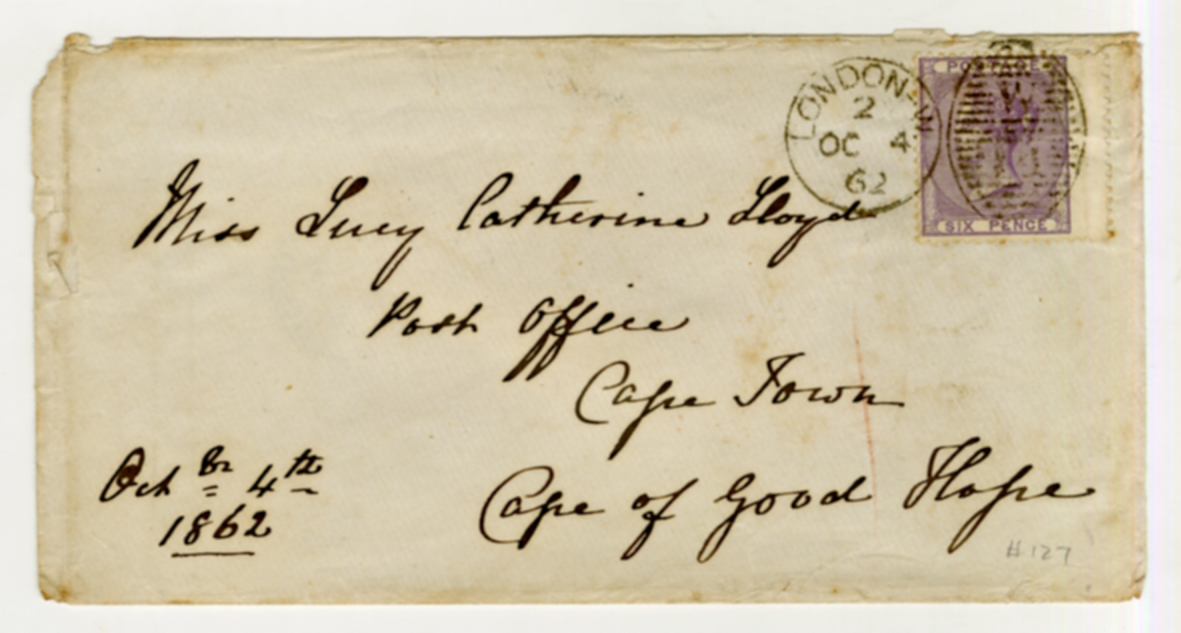 LONDON-W
2
OC 4
62
POSTAGE
SIX PENCE
Miss Lucy Catherine Lloyd
Post Office
Cape Town
Cape of Good Hope
Octbr 4th
1862
#127